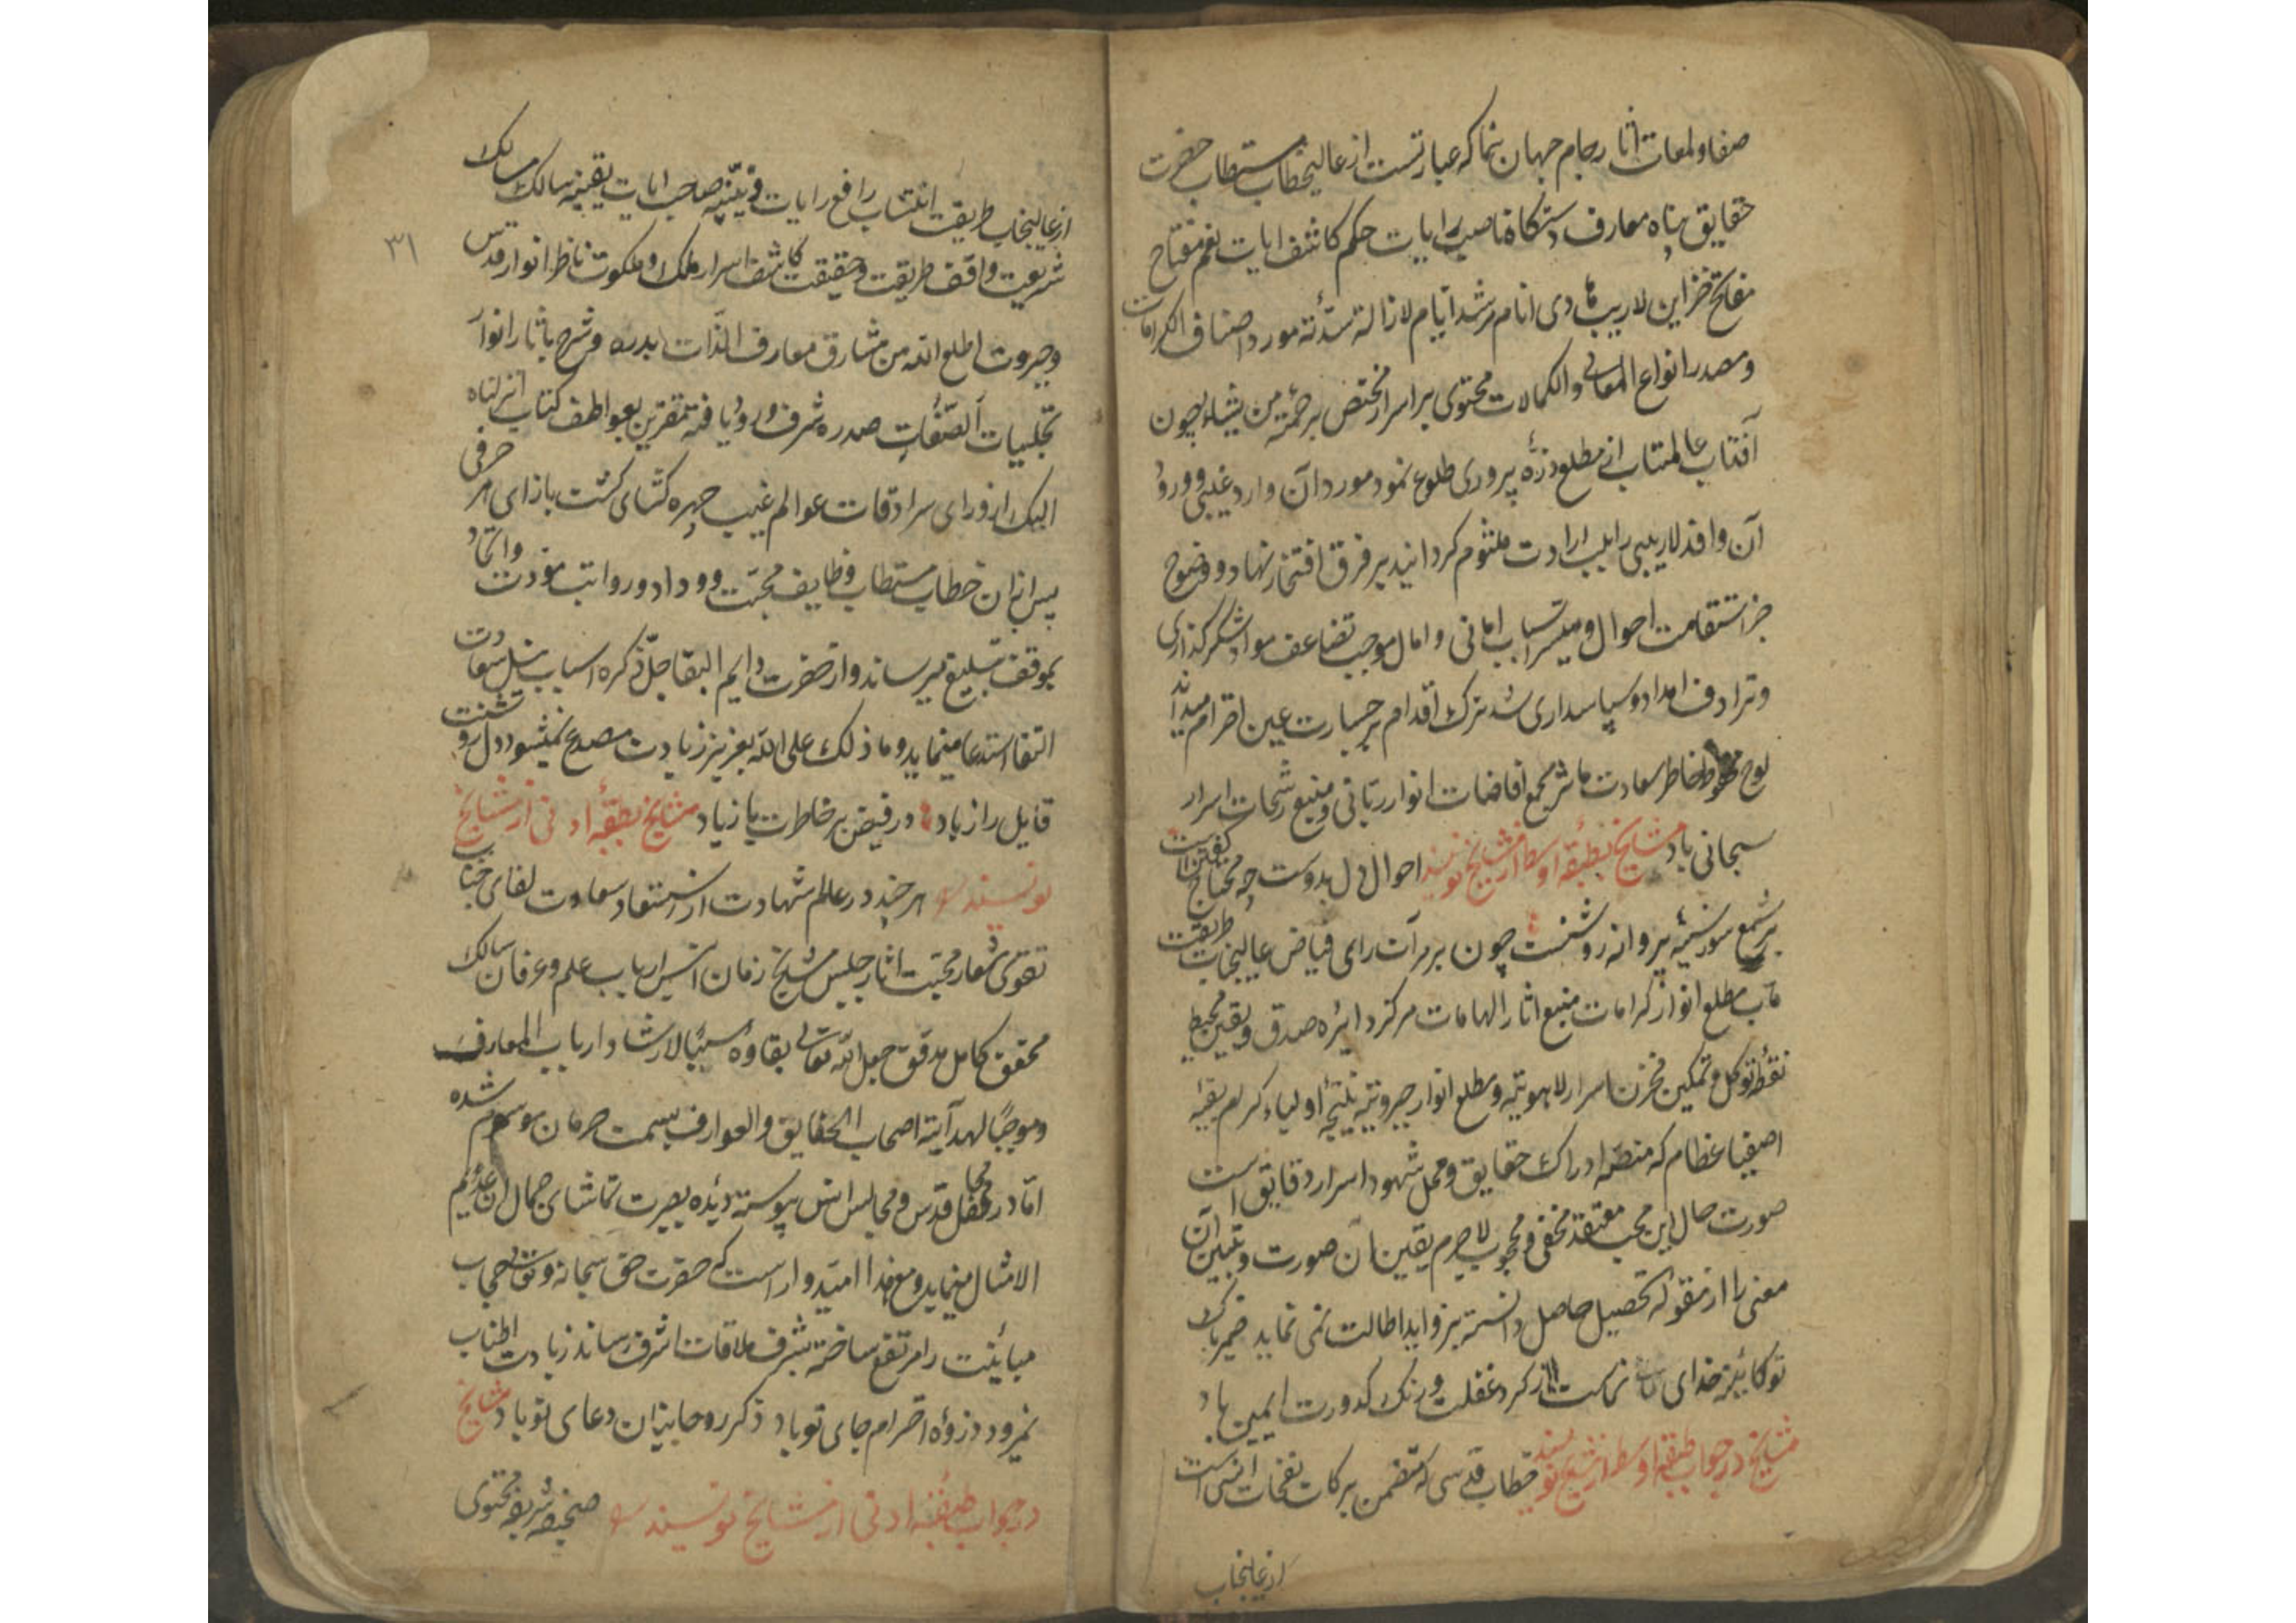 صفا و لمعات اثار جام جهان نما که عبارتست از عالیخطاب مستطاب حضرت
حقایق پناه معارف دستکاه ناصب رایات حکم کاشف ایات نعم مفتاح
مفاتح خزاین لاریب هادی انام مرشد ایام لازالة سدّته مورد اصناف الکرامات
و مصدر انواع المعالی والکمالات محتوی بر اسرار مختص برحمته من یشاء چون
آفتاب عالمتاب از مطلع ذرّه پروری طلوع نمود مورد آن وارد غیبی و ورود
آن وافد لاریبی را بلب ارادت ملثوم کردانیده بر فرق افتخار نهاد و وضوح
خبر استقامت احوال و میسر اسباب امانی و امال موجب تضاعف مواد شکر کذاری
و ترادف امداد و سپاسداری شد ترک اقدام بر جسارت عین احترام میداند
لوح خاطر سعادت ماثر مجمع افاضات انوار ربّانی و منبع رشحات اسرار
سبحانی باد مشایخ بطبقه اوسط از مشایخ نویسند احوال دل بدوست چه محتاج کفتن است
بر شمع سوز سینه پروانه روشنست چون بر مرآت رای فیاض عالیجناب طریقت
مآب مطلع انوار کرامات منبع اثار الهامات مرکز دایره صدق و یقین محیط
نقطه توکل و تمکین مخزن اسرار لاهوتیه و مطلع انوار جبروتیه نتیجه اولیاء کرام بقیه
اصفیا عظام که منصّه ادراک حقایق و محل شهود اسرار دقایق است
صورت حال این محب معتقد مخفی و محجوب لاجرم یقین آن صورت و تبیین آن
معنی را از مقوله تحصیل حاصل دانسته بزواید اطالت نمی نماید ضمیر پاک
تو کائینه خدای نماست از کرد غفلت و زنک کدورت ایمن باد
مشایخ در جواب طبقه اوسط از مشایخ نویسند خطاب قدسی که متضمن برکات نفحات انسی است
از عالیجناب
۳۱
از عالیجناب طریقت انتساب رافع رایات دینیّه صاحب ایات یقینیه سالک مسالک
شریعت واقف طریقت و حقیقت کاشف اسرار ملک و ملکوت ناظر انوار قدس
و جبروت اطلع الله من مشارق معارف الذّات بدره و شرح باثار انوار
تجلییات الصّفات صدره شرف ورود یافته مقترین بعواطف کتاب انزلناه
الیک از ورای سرادقات عوالم غیب چهره کشای کشت بازای هر حرفی
پس از آن خطاب مستطاب وظایف محبّت و وداد و رواتب مودت و اتحاد
بموقف تبلیغ میرساند و از حضرت دایم البقا جلّ ذکره اسباب نیل سعادت
التقا استدعا مینماید و ما ذلک علی الله بعزیز زیادت مصدع نمیشود دل روشنت
قایل راز باد در فیض بر خاطرت باز باد مشایخ بطبقهٔ ادنی از مشایخ
نویسند هر چند در عالم شهادت از استسعاد سعادت لقای جناب
تقوی شعار محبّت اثار جلیس مشایخ زمان انیس ارباب علم و عرفان سالک
محقق کامل مدقق جعل الله تعالی بقاوه سببًا لارشاد ارباب المعارف
و موجبًا لهدایة اصحاب الحقایق والعوارف بسمت حرمان موسوم شده
امّا در محافل قدس و مجالس انس پیوسته دیدهٔ بصیرت تماشای جمال ان عدیم
الامثال مینماید و مع هذا امیدوار است که حضرت حق سبحانه و تعالی حجاب
مباینت را مرتفع ساخته بشرف ملاقات اشرف رساند زیادت اطناب
نمیرود ذروهٔ احترام جای تو باد ذکر روحانیان دعای تو باد مشایخ
در جواب طبقه ادنی از مشایخ نویسند صحیفه شریفه محتوی